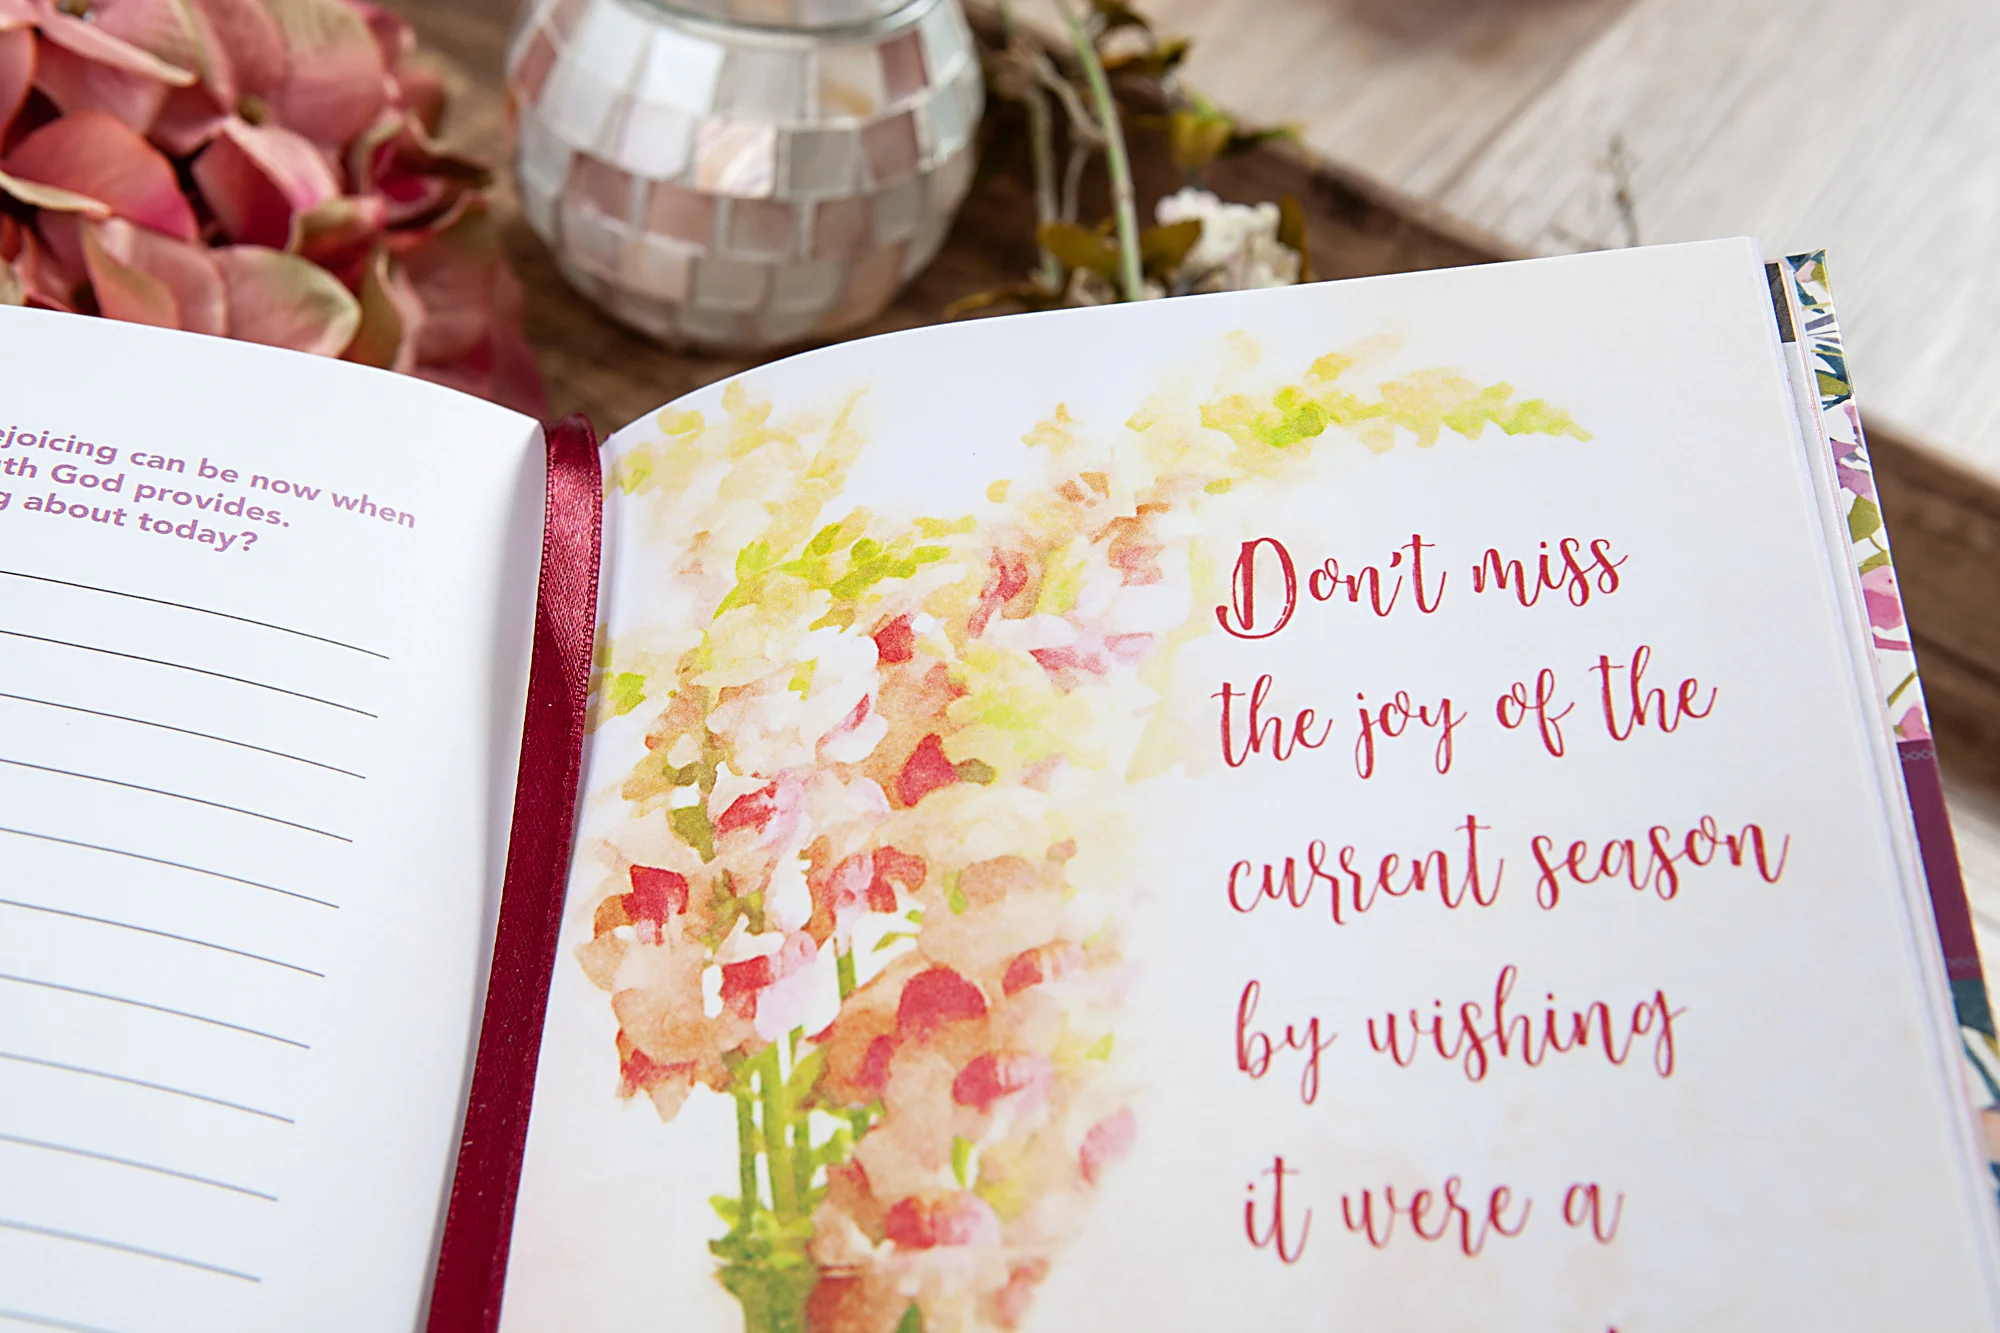 can be now when
God provides.
about today?
Don't miss
the joy of the
current season
by wishing
it were a